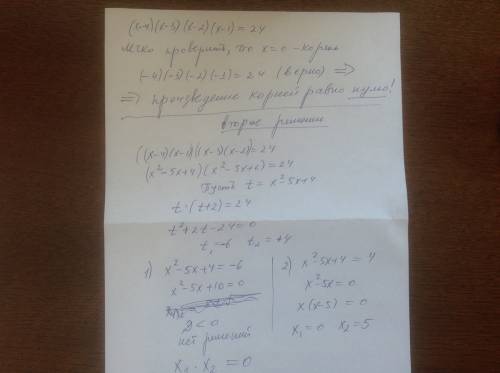 (x-4)(x-3)(x-2)(x-1)=24
Легко проверить, что x=0 - корень
(-4)(-3)(-2)(-1)=24 (верно) =>
=> произведение корней равно нулю!
второе решение
((x-4)(x-1))((x-3)(x-2))=24
(x²-5x+4)(x²-5x+6)=24
Пусть t = x²-5x+4
t·(t+2)=24
t²+2t-24=0
t₁=-6 t₂=+4
1) x²-5x+4=-6
x²-5x+10=0
D<0
нет решений
x₁·x₂=0
2) x²-5x+4=4
x²-5x=0
x(x-5)=0
x₁=0 x₂=5